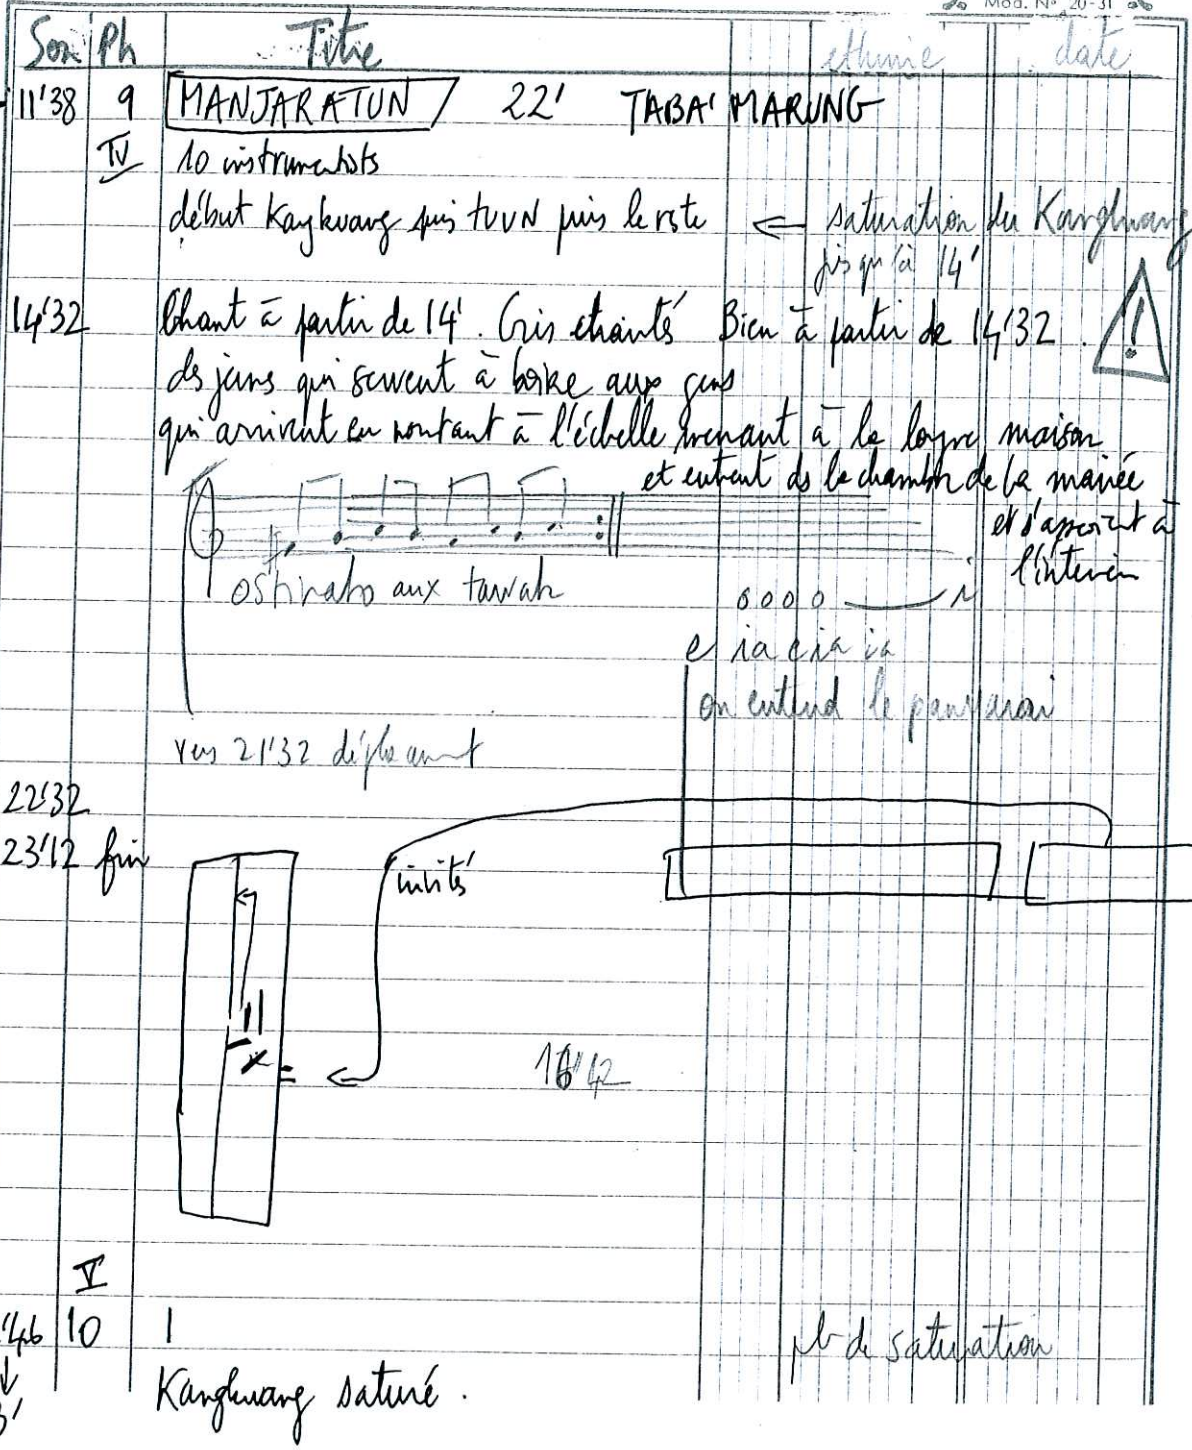 Mod. N° 20-31
Son Ph Titre ethnie date
11'38 9 MANJARATUN 22' TABA' MARUNG
IV 10 instrumentists
début Kangkuang puis tuun puis le reste ← saturation du Kangkuang
jusqu'à 14'
14'32 Chant à partir de 14'. Cris chantés Bien à partir de 14'32.
ds jeunes qui servent à boire aux gens
qui arrivent en montant à l'échelle menant à la longue maison
et entrent ds la chambre de la mariée
et s'assoient à
l'intérieur
ostinato aux tawak
o o o o i
e ia eia ia
on entend le
vers 21'32 déplacement
22'32
23'12 fin
invités
42
V
'46 10 1
pb de saturation
3' Kangkuang saturé.